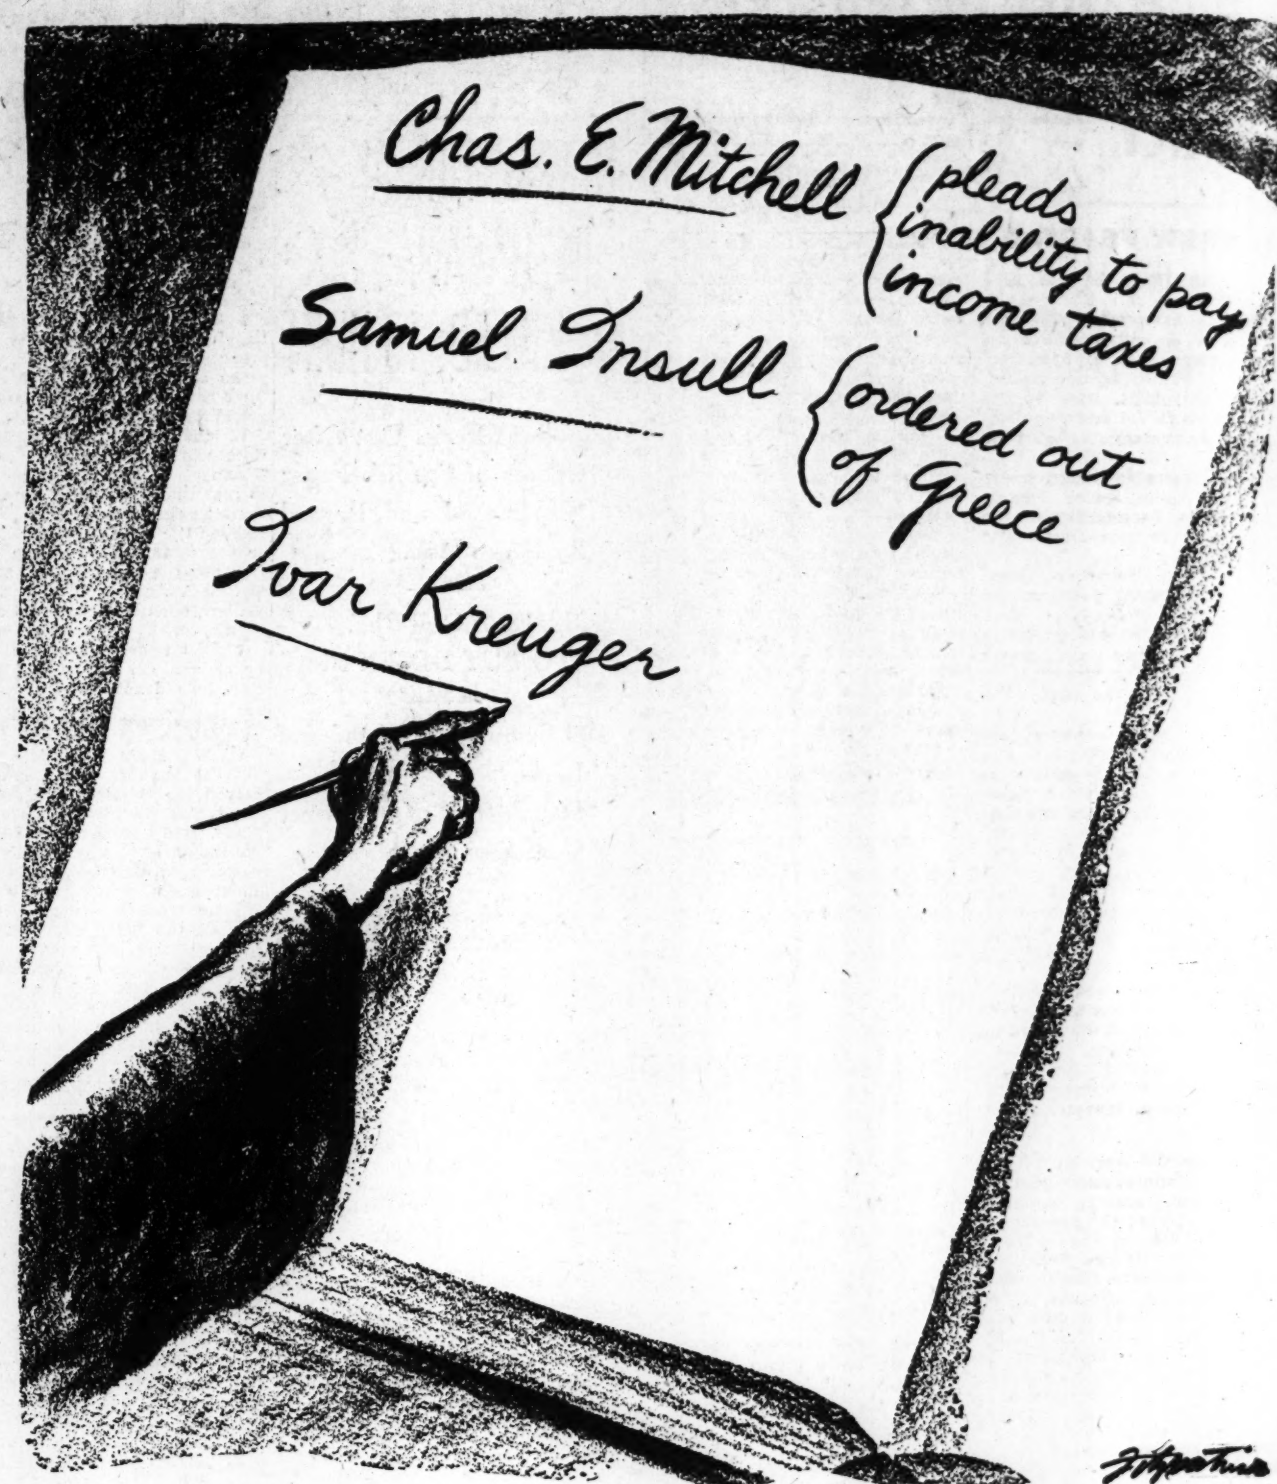 Chas. E. Mitchell
pleads
inability to pay
income taxes
Samuel Insull
ordered out
of Greece
Ivar Kreuger
Fitzpatrick